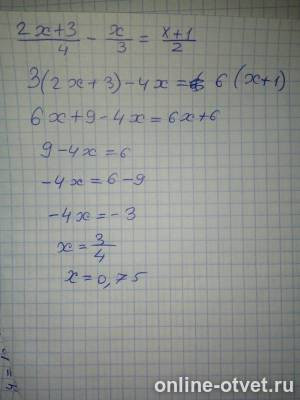 (2x+3)/4 - x/3 = (x+1)/2
3(2x+3)-4x = 6(x+1)
6x+9-4x=6x+6
9-4x=6
-4x=6-9
-4x=-3
x=3/4
x=0,75
online-otvet.ru